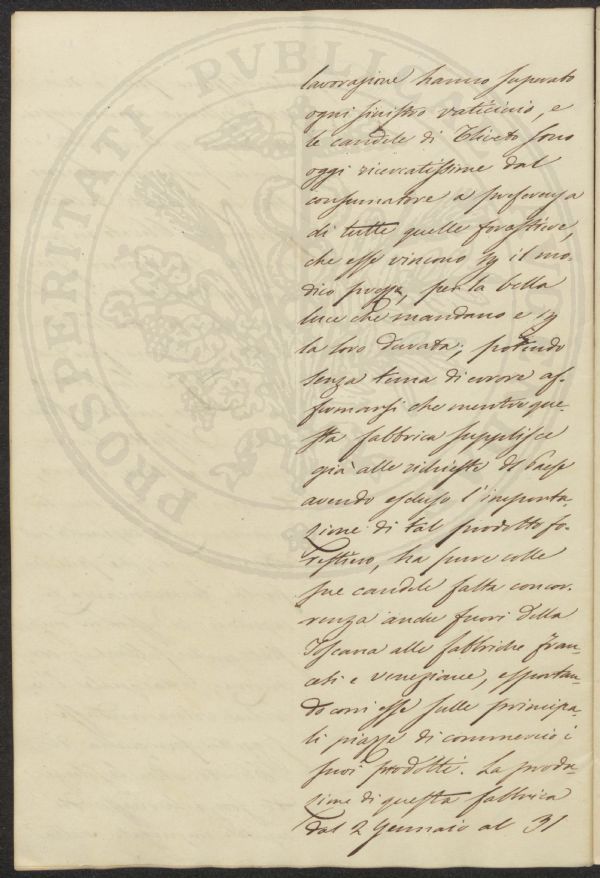 PROSPERITATI PUBLICAE
lavorazione hanno superato
ogni sinistro vaticinio, e
le candele di Oliveto sono
oggi ricercatissime dal
consumatore a preferenza
di tutte quelle forastiere,
che esse vincono p il mo-
dico prezzo, per la bella
luce che mandano e p
la loro durata; potendo
senza tema di errore af-
fermarsi che mentre que-
sta fabbrica supplisce
già alle richieste del Paese
avendo escluso l'importa-
zione di tal prodotto fo-
restiero, ha pure colle
sue candele fatta concor-
renza anche fuori della
Toscana alle fabbriche fran-
cesi e veneziane, esportan-
do com'esse sulle principa-
li piazze di commercio i
suoi prodotti. La produ-
zione di questa fabbrica
dal 2 Gennaio al 31